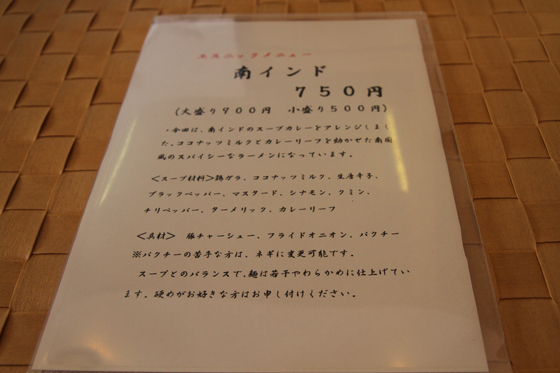 エスニックメニュー
南インド
750円
(大盛り900円 小盛り500円)
・今回は、南インドのスープカレーをアレンジしまし
た。ココナッツミルクとカレーリーフを効かせた南国
風のスパイシーなラーメンになっています。
<スープ材料>鶏ガラ、ココナッツミルク、生唐辛子、
ブラックペッパー、マスタード、シナモン、クミン、
チリペッパー、ターメリック、カレーリーフ
<具材> 豚チャーシュー、フライドオニオン、パクチー
※パクチーの苦手な方は、ネギに変更可能です。
スープとのバランスで、麺は若干やわらかめに仕上げてい
ます。硬めがお好きな方はお申し付けください。